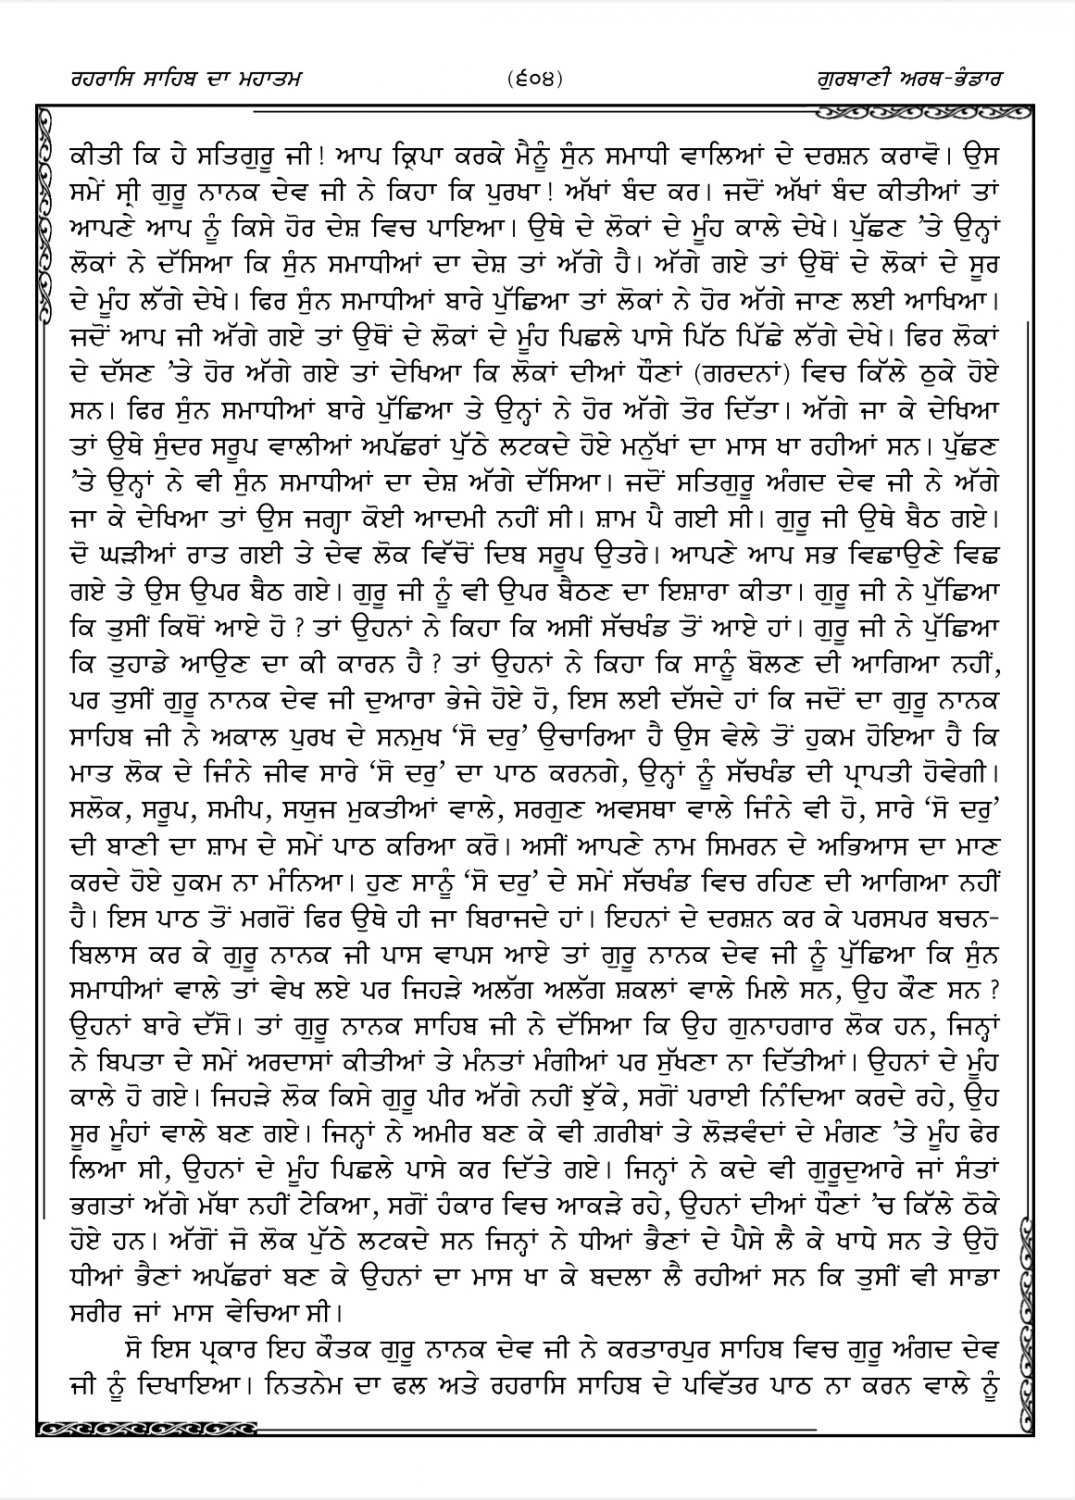 ਰਹਰਾਸਿ ਸਾਹਿਬ ਦਾ ਮਹਾਤਮ (੬੦੪) ਗੁਰਬਾਣੀ ਅਰਥ-ਭੰਡਾਰ
ਕੀਤੀ ਕਿ ਹੇ ਸਤਿਗੁਰੂ ਜੀ! ਆਪ ਕ੍ਰਿਪਾ ਕਰਕੇ ਮੈਨੂੰ ਸੁੰਨ ਸਮਾਧੀ ਵਾਲਿਆਂ ਦੇ ਦਰਸ਼ਨ ਕਰਾਵੋ। ਉਸ
ਸਮੇਂ ਸ੍ਰੀ ਗੁਰੂ ਨਾਨਕ ਦੇਵ ਜੀ ਨੇ ਕਿਹਾ ਕਿ ਪੁਰਖਾ! ਅੱਖਾਂ ਬੰਦ ਕਰ। ਜਦੋਂ ਅੱਖਾਂ ਬੰਦ ਕੀਤੀਆਂ ਤਾਂ
ਆਪਣੇ ਆਪ ਨੂੰ ਕਿਸੇ ਹੋਰ ਦੇਸ਼ ਵਿਚ ਪਾਇਆ। ਉਥੇ ਦੇ ਲੋਕਾਂ ਦੇ ਮੂੰਹ ਕਾਲੇ ਦੇਖੇ। ਪੁੱਛਣ ’ਤੇ ਉਨ੍ਹਾਂ
ਲੋਕਾਂ ਨੇ ਦੱਸਿਆ ਕਿ ਸੁੰਨ ਸਮਾਧੀਆਂ ਦਾ ਦੇਸ਼ ਤਾਂ ਅੱਗੇ ਹੈ। ਅੱਗੇ ਗਏ ਤਾਂ ਉਥੋਂ ਦੇ ਲੋਕਾਂ ਦੇ ਸੂਰ
ਦੇ ਮੂੰਹ ਲੱਗੇ ਦੇਖੇ। ਫਿਰ ਸੁੰਨ ਸਮਾਧੀਆਂ ਬਾਰੇ ਪੁੱਛਿਆ ਤਾਂ ਲੋਕਾਂ ਨੇ ਹੋਰ ਅੱਗੇ ਜਾਣ ਲਈ ਆਖਿਆ।
ਜਦੋਂ ਆਪ ਜੀ ਅੱਗੇ ਗਏ ਤਾਂ ਉਥੋਂ ਦੇ ਲੋਕਾਂ ਦੇ ਮੂੰਹ ਪਿਛਲੇ ਪਾਸੇ ਪਿੱਠ ਪਿੱਛੇ ਲੱਗੇ ਦੇਖੇ। ਫਿਰ ਲੋਕਾਂ
ਦੇ ਦੱਸਣ ’ਤੇ ਹੋਰ ਅੱਗੇ ਗਏ ਤਾਂ ਦੇਖਿਆ ਕਿ ਲੋਕਾਂ ਦੀਆਂ ਧੌਣਾਂ (ਗਰਦਨਾਂ) ਵਿਚ ਕਿੱਲੇ ਠੁਕੇ ਹੋਏ
ਸਨ। ਫਿਰ ਸੁੰਨ ਸਮਾਧੀਆਂ ਬਾਰੇ ਪੁੱਛਿਆ ਤੇ ਉਨ੍ਹਾਂ ਨੇ ਹੋਰ ਅੱਗੇ ਤੋਰ ਦਿੱਤਾ। ਅੱਗੇ ਜਾ ਕੇ ਦੇਖਿਆ
ਤਾਂ ਉਥੇ ਸੁੰਦਰ ਸਰੂਪ ਵਾਲੀਆਂ ਅਪੱਛਰਾਂ ਪੁੱਠੇ ਲਟਕਦੇ ਹੋਏ ਮਨੁੱਖਾਂ ਦਾ ਮਾਸ ਖਾ ਰਹੀਆਂ ਸਨ। ਪੁੱਛਣ
’ਤੇ ਉਨ੍ਹਾਂ ਨੇ ਵੀ ਸੁੰਨ ਸਮਾਧੀਆਂ ਦਾ ਦੇਸ਼ ਅੱਗੇ ਦੱਸਿਆ। ਜਦੋਂ ਸਤਿਗੁਰੂ ਅੰਗਦ ਦੇਵ ਜੀ ਨੇ ਅੱਗੇ
ਜਾ ਕੇ ਦੇਖਿਆ ਤਾਂ ਉਸ ਜਗ੍ਹਾ ਕੋਈ ਆਦਮੀ ਨਹੀਂ ਸੀ। ਸ਼ਾਮ ਪੈ ਗਈ ਸੀ। ਗੁਰੂ ਜੀ ਉਥੇ ਬੈਠ ਗਏ।
ਦੋ ਘੜੀਆਂ ਰਾਤ ਗਈ ਤੇ ਦੇਵ ਲੋਕ ਵਿੱਚੋਂ ਦਿਬ ਸਰੂਪ ਉਤਰੇ। ਆਪਣੇ ਆਪ ਸਭ ਵਿਛਾਉਣੇ ਵਿਛ
ਗਏ ਤੇ ਉਸ ਉਪਰ ਬੈਠ ਗਏ। ਗੁਰੂ ਜੀ ਨੂੰ ਵੀ ਉਪਰ ਬੈਠਣ ਦਾ ਇਸ਼ਾਰਾ ਕੀਤਾ। ਗੁਰੂ ਜੀ ਨੇ ਪੁੱਛਿਆ
ਕਿ ਤੁਸੀਂ ਕਿਥੋਂ ਆਏ ਹੋ ? ਤਾਂ ਉਹਨਾਂ ਨੇ ਕਿਹਾ ਕਿ ਅਸੀਂ ਸੱਚਖੰਡ ਤੋਂ ਆਏ ਹਾਂ। ਗੁਰੂ ਜੀ ਨੇ ਪੁੱਛਿਆ
ਕਿ ਤੁਹਾਡੇ ਆਉਣ ਦਾ ਕੀ ਕਾਰਨ ਹੈ ? ਤਾਂ ਉਹਨਾਂ ਨੇ ਕਿਹਾ ਕਿ ਸਾਨੂੰ ਬੋਲਣ ਦੀ ਆਗਿਆ ਨਹੀਂ,
ਪਰ ਤੁਸੀਂ ਗੁਰੂ ਨਾਨਕ ਦੇਵ ਜੀ ਦੁਆਰਾ ਭੇਜੇ ਹੋਏ ਹੋ, ਇਸ ਲਈ ਦੱਸਦੇ ਹਾਂ ਕਿ ਜਦੋਂ ਦਾ ਗੁਰੂ ਨਾਨਕ
ਸਾਹਿਬ ਜੀ ਨੇ ਅਕਾਲ ਪੁਰਖ ਦੇ ਸਨਮੁਖ ‘ਸੋ ਦਰੁ’ ਉਚਾਰਿਆ ਹੈ ਉਸ ਵੇਲੇ ਤੋਂ ਹੁਕਮ ਹੋਇਆ ਹੈ ਕਿ
ਮਾਤ ਲੋਕ ਦੇ ਜਿੰਨੇ ਜੀਵ ਸਾਰੇ ‘ਸੋ ਦਰੁ’ ਦਾ ਪਾਠ ਕਰਨਗੇ, ਉਨ੍ਹਾਂ ਨੂੰ ਸੱਚਖੰਡ ਦੀ ਪ੍ਰਾਪਤੀ ਹੋਵੇਗੀ।
ਸਲੋਕ, ਸਰੂਪ, ਸਮੀਪ, ਸਯੁਜ ਮੁਕਤੀਆਂ ਵਾਲੇ, ਸਰਗੁਣ ਅਵਸਥਾ ਵਾਲੇ ਜਿੰਨੇ ਵੀ ਹੋ, ਸਾਰੇ ‘ਸੋ ਦਰੁ’
ਦੀ ਬਾਣੀ ਦਾ ਸ਼ਾਮ ਦੇ ਸਮੇਂ ਪਾਠ ਕਰਿਆ ਕਰੋ। ਅਸੀਂ ਆਪਣੇ ਨਾਮ ਸਿਮਰਨ ਦੇ ਅਭਿਆਸ ਦਾ ਮਾਣ
ਕਰਦੇ ਹੋਏ ਹੁਕਮ ਨਾ ਮੰਨਿਆ। ਹੁਣ ਸਾਨੂੰ ‘ਸੋ ਦਰੁ’ ਦੇ ਸਮੇਂ ਸੱਚਖੰਡ ਵਿਚ ਰਹਿਣ ਦੀ ਆਗਿਆ ਨਹੀਂ
ਹੈ। ਇਸ ਪਾਠ ਤੋਂ ਮਗਰੋਂ ਫਿਰ ਉਥੇ ਹੀ ਜਾ ਬਿਰਾਜਦੇ ਹਾਂ। ਇਹਨਾਂ ਦੇ ਦਰਸ਼ਨ ਕਰ ਕੇ ਪਰਸਪਰ ਬਚਨ-
ਬਿਲਾਸ ਕਰ ਕੇ ਗੁਰੂ ਨਾਨਕ ਜੀ ਪਾਸ ਵਾਪਸ ਆਏ ਤਾਂ ਗੁਰੂ ਨਾਨਕ ਦੇਵ ਜੀ ਨੂੰ ਪੁੱਛਿਆ ਕਿ ਸੁੰਨ
ਸਮਾਧੀਆਂ ਵਾਲੇ ਤਾਂ ਵੇਖ ਲਏ ਪਰ ਜਿਹੜੇ ਅਲੱਗ ਅਲੱਗ ਸ਼ਕਲਾਂ ਵਾਲੇ ਮਿਲੇ ਸਨ, ਉਹ ਕੌਣ ਸਨ ?
ਉਹਨਾਂ ਬਾਰੇ ਦੱਸੋ। ਤਾਂ ਗੁਰੂ ਨਾਨਕ ਸਾਹਿਬ ਜੀ ਨੇ ਦੱਸਿਆ ਕਿ ਉਹ ਗੁਨਾਹਗਾਰ ਲੋਕ ਹਨ, ਜਿਨ੍ਹਾਂ
ਨੇ ਬਿਪਤਾ ਦੇ ਸਮੇਂ ਅਰਦਾਸਾਂ ਕੀਤੀਆਂ ਤੇ ਮੰਨਤਾਂ ਮੰਗੀਆਂ ਪਰ ਸੁੱਖਣਾ ਨਾ ਦਿੱਤੀਆਂ। ਉਹਨਾਂ ਦੇ ਮੂੰਹ
ਕਾਲੇ ਹੋ ਗਏ। ਜਿਹੜੇ ਲੋਕ ਕਿਸੇ ਗੁਰੂ ਪੀਰ ਅੱਗੇ ਨਹੀਂ ਝੁੱਕੇ, ਸਗੋਂ ਪਰਾਈ ਨਿੰਦਿਆ ਕਰਦੇ ਰਹੇ, ਉਹ
ਸੂਰ ਮੂੰਹਾਂ ਵਾਲੇ ਬਣ ਗਏ। ਜਿਨ੍ਹਾਂ ਨੇ ਅਮੀਰ ਬਣ ਕੇ ਵੀ ਗ਼ਰੀਬਾਂ ਤੇ ਲੋੜਵੰਦਾਂ ਦੇ ਮੰਗਣ ’ਤੇ ਮੂੰਹ ਫੇਰ
ਲਿਆ ਸੀ, ਉਹਨਾਂ ਦੇ ਮੂੰਹ ਪਿਛਲੇ ਪਾਸੇ ਕਰ ਦਿੱਤੇ ਗਏ। ਜਿਨ੍ਹਾਂ ਨੇ ਕਦੇ ਵੀ ਗੁਰੂਦੁਆਰੇ ਜਾਂ ਸੰਤਾਂ
ਭਗਤਾਂ ਅੱਗੇ ਮੱਥਾ ਨਹੀਂ ਟੇਕਿਆ, ਸਗੋਂ ਹੰਕਾਰ ਵਿਚ ਆਕੜੇ ਰਹੇ, ਉਹਨਾਂ ਦੀਆਂ ਧੌਣਾਂ ’ਚ ਕਿੱਲੇ ਠੋਕੇ
ਹੋਏ ਹਨ। ਅੱਗੋਂ ਜੋ ਲੋਕ ਪੁੱਠੇ ਲਟਕਦੇ ਸਨ ਜਿਨ੍ਹਾਂ ਨੇ ਧੀਆਂ ਭੈਣਾਂ ਦੇ ਪੈਸੇ ਲੈ ਕੇ ਖਾਧੇ ਸਨ ਤੇ ਉਹੋ
ਧੀਆਂ ਭੈਣਾਂ ਅਪੱਛਰਾਂ ਬਣ ਕੇ ਉਹਨਾਂ ਦਾ ਮਾਸ ਖਾ ਕੇ ਬਦਲਾ ਲੈ ਰਹੀਆਂ ਸਨ ਕਿ ਤੁਸੀਂ ਵੀ ਸਾਡਾ
ਸਰੀਰ ਜਾਂ ਮਾਸ ਵੇਚਿਆ ਸੀ।
ਸੋ ਇਸ ਪ੍ਰਕਾਰ ਇਹ ਕੌਤਕ ਗੁਰੂ ਨਾਨਕ ਦੇਵ ਜੀ ਨੇ ਕਰਤਾਰਪੁਰ ਸਾਹਿਬ ਵਿਚ ਗੁਰੂ ਅੰਗਦ ਦੇਵ
ਜੀ ਨੂੰ ਦਿਖਾਇਆ। ਨਿਤਨੇਮ ਦਾ ਫਲ ਅਤੇ ਰਹਰਾਸਿ ਸਾਹਿਬ ਦੇ ਪਵਿੱਤਰ ਪਾਠ ਨਾ ਕਰਨ ਵਾਲੇ ਨੂੰ